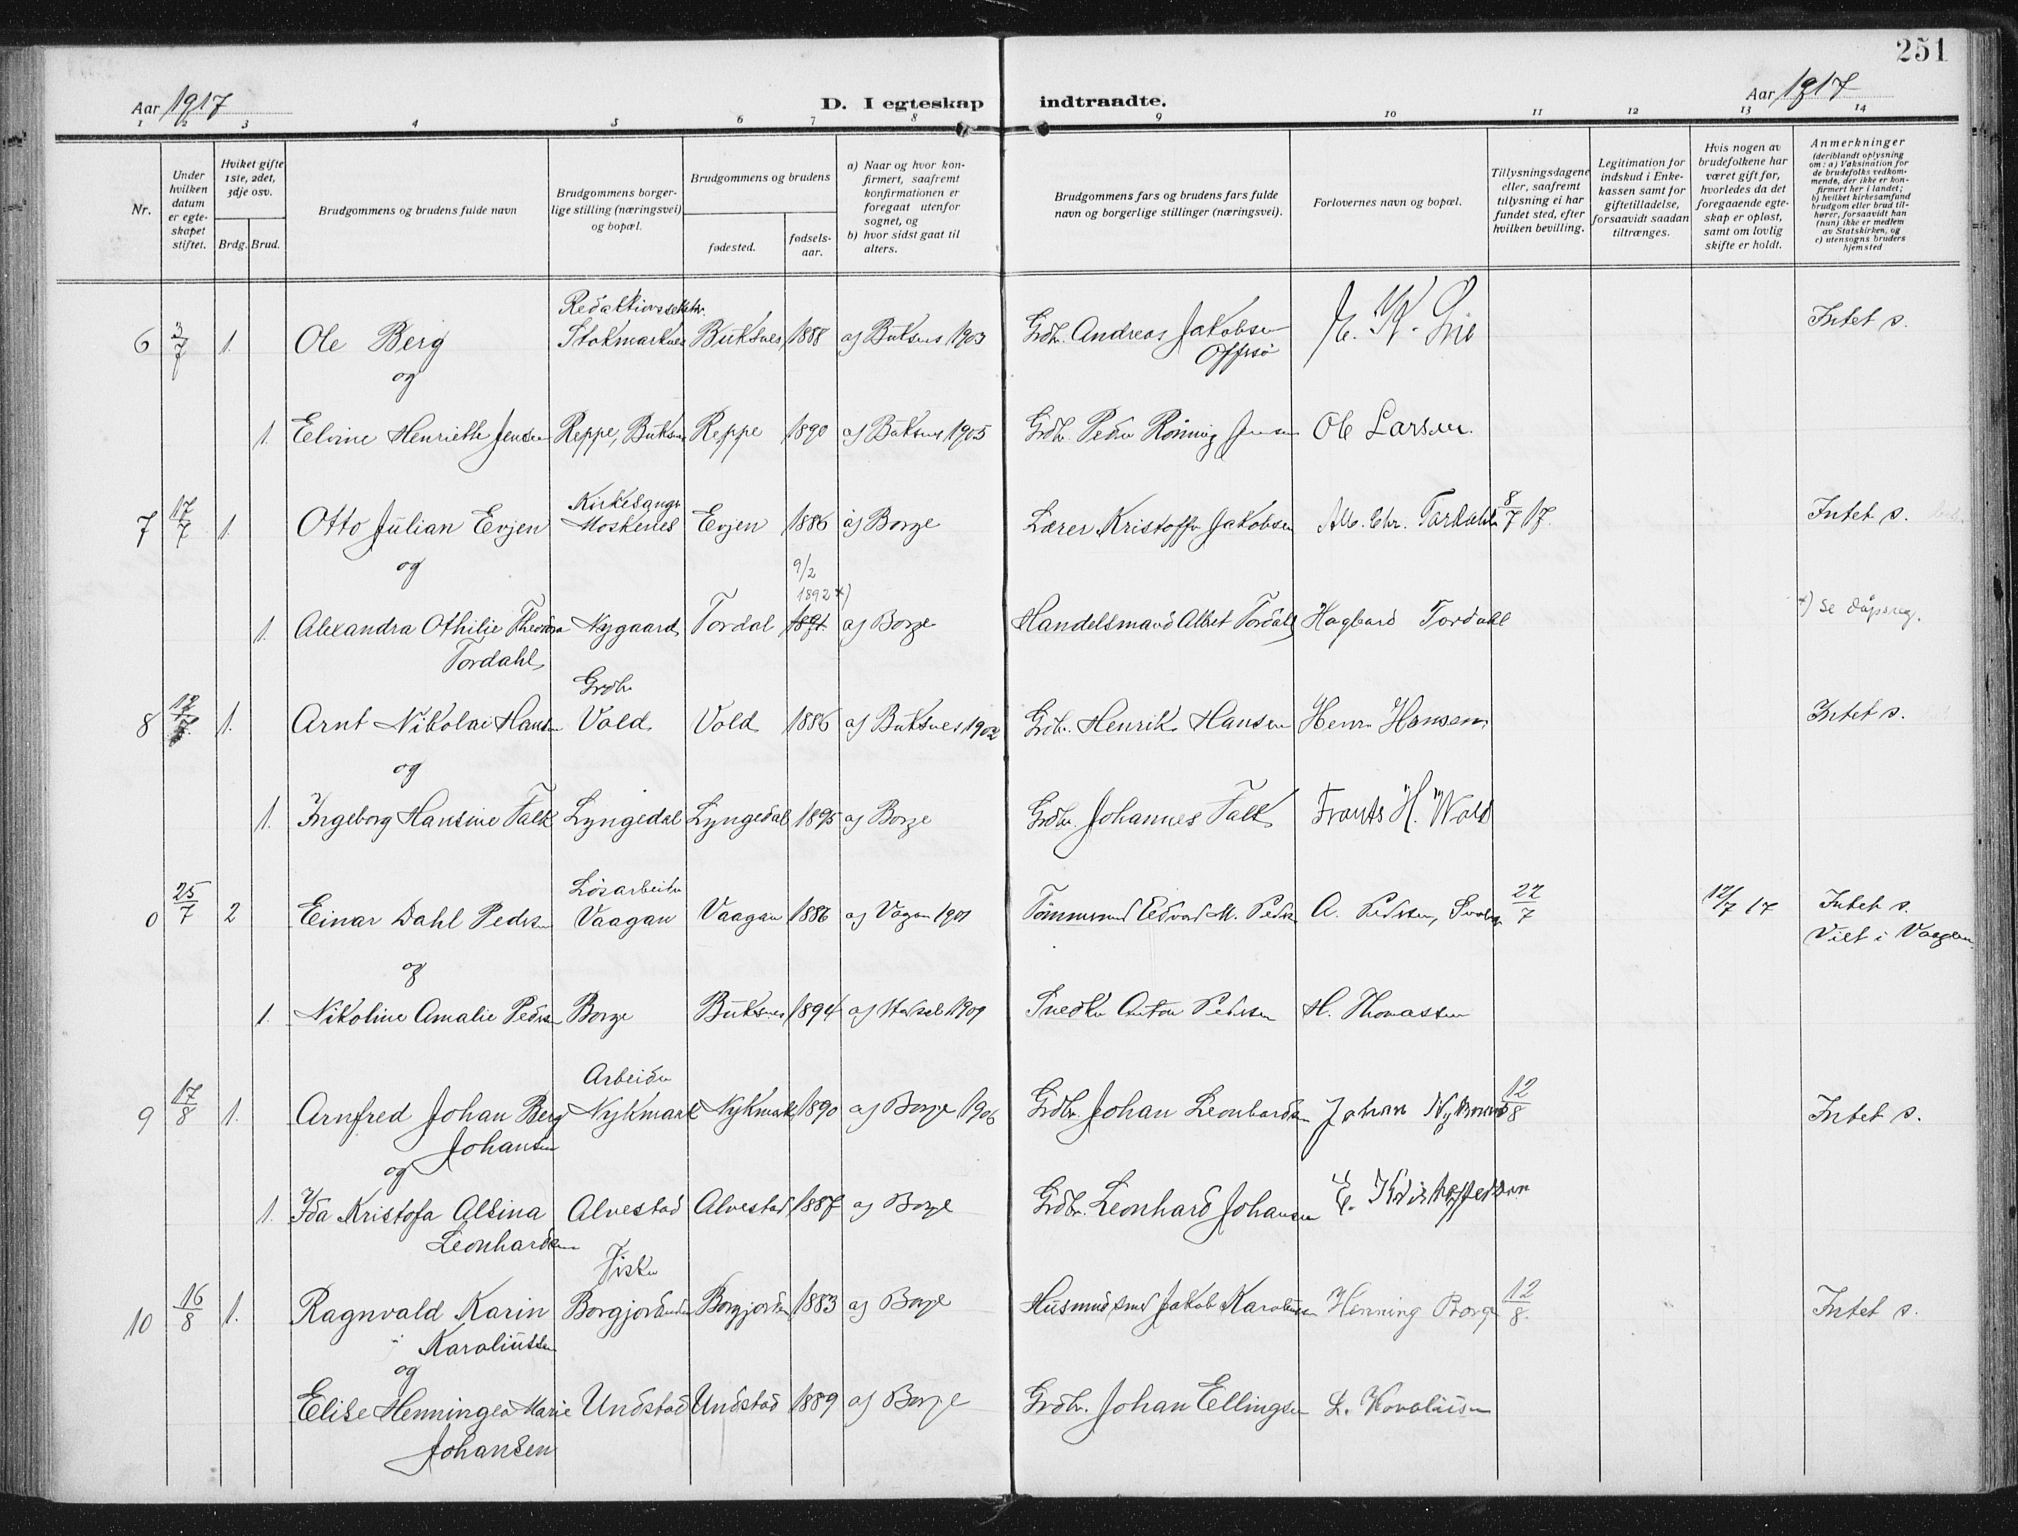 251
Aar 1917 D. I egteskap indtraadte. Aar 1917
1 2 3 4 5 6 7 8 9 10 11 12 13 14
Nr.
Under hvilken datum er egteskapet stiftet.
Hviket gifte 1ste, 2det, 3dje osv.
Brdg. Brud.
Brudgommens og brudens fulde navn
Brudgommens borgerlige stilling (næringsvei) og bopæl.
Brudgommens og brudens
fødested.
fødselsaar.
a) Naar og hvor konfirmert, saafremt konfirmationen er foregaat utenfor sognet, og
b) hvor sidst gaat til alters.
Brudgommens fars og brudens fars fulde navn og borgerlige stillinger (næringsvei).
Forlovernes navn og bopæl.
Tillysningsdagene eller, saafremt tillysning ei har fundet sted, efter hvilken bevilling.
Legitimation for indskud i Enkekassen samt for giftetilladelse, forsaavidt saadan tiltrænges.
Hvis nogen av brudefolkene har været gift før, hvorledes da det foregaaende egteskap er opløst, samt om lovlig skifte er holdt.
Anmerkninger
(deriblandt oplysning om: a) Vaksination for de brudefolks vedkommende, der ikke er konfirmert her i landet; b) hvilket kirkesamfund brudgom eller brud tilhører, forsaavidt han (hun) ikke er medlem av Statskirken, og c) utensogns bruders hjemsted
Redaktionssekr.
6 3/7 1. Ole Berg Stokmarknes Buksnes 1888 a) Buksnes 1903 Grdbr. Andreas Jakobsen Offersø Intet s.
og
1. Elvine Henriette Jensen Reppe, Buksnes Reppe 1890 a) Buksnes 1905 Grdbr. Peder Rönning Jensen Ole Larsen.
Kirkesanger
7 17/7 1. Otto Julian Evjen Moskenes Evjen 1886 a) Borge Lærer Kristoffer Jakobsen Alb. Chr. Tordahl 8/7 17. Intet s.
og
9/2 1892 x)
1. Alexandra Othilie Theodora Nygaard Tordal 1891. a) Borge Handelsmand Albert Tordahl Hagbard Tordahl x) se dåpsreg.
Tordahl
Grdbr.
8 1. Arnt Nikolai Hansen Vold Vold 1886 a) Buksnes 1902 Grdbr. Henrik Hansen Henr. Hansen Intet s.
og
1. Ingeborg Hansine Falk Lyngedal Lyngedal 1895 a) Borge Grdbr. Johannes Falk Frants H. Wold
Løsarbeider
0 25/7 2 Einar Dahl Pedersen Vaagan Vaagan 1886 a) Vågan 1901 Tømmermand Edvard M. Pedersen A. Pedersen, 22/7 12/7 17 Intet s.
Viet i Vaagan
og
1. Nikoline Amalie Pedersen Borge Buksnes 1894 a) Hadsel 1909 Snedker Anton Pedersen H. Thomassen
Arbeider
9 17/8 1. Arnfred Johan Berg Nykmark Nykmark 1890 a) Borge 1906 Grdbr. Johan Leonhardsen Johan Nykmark 12/8 Intet s.
Johansen
og
1. Ida Kristofa Alsina Alvestad Alvestad 1887 a) Borge Grdbr. Leonhard Johansen E. Kristoffersen
Leonhardsen
Fisker
10 16/8 1. Ragnvald Karin Borgjorden Borgjorden 1883 a) Borge Husmand Jakob Karoliussen Henning Borge 12/8. Intet s.
Karoliussen
og
Elise Henningea Marie Undstad Undstad 1889 a) Borge Grdbr. Johan Ellingsen L. Karoliusen
Johansen